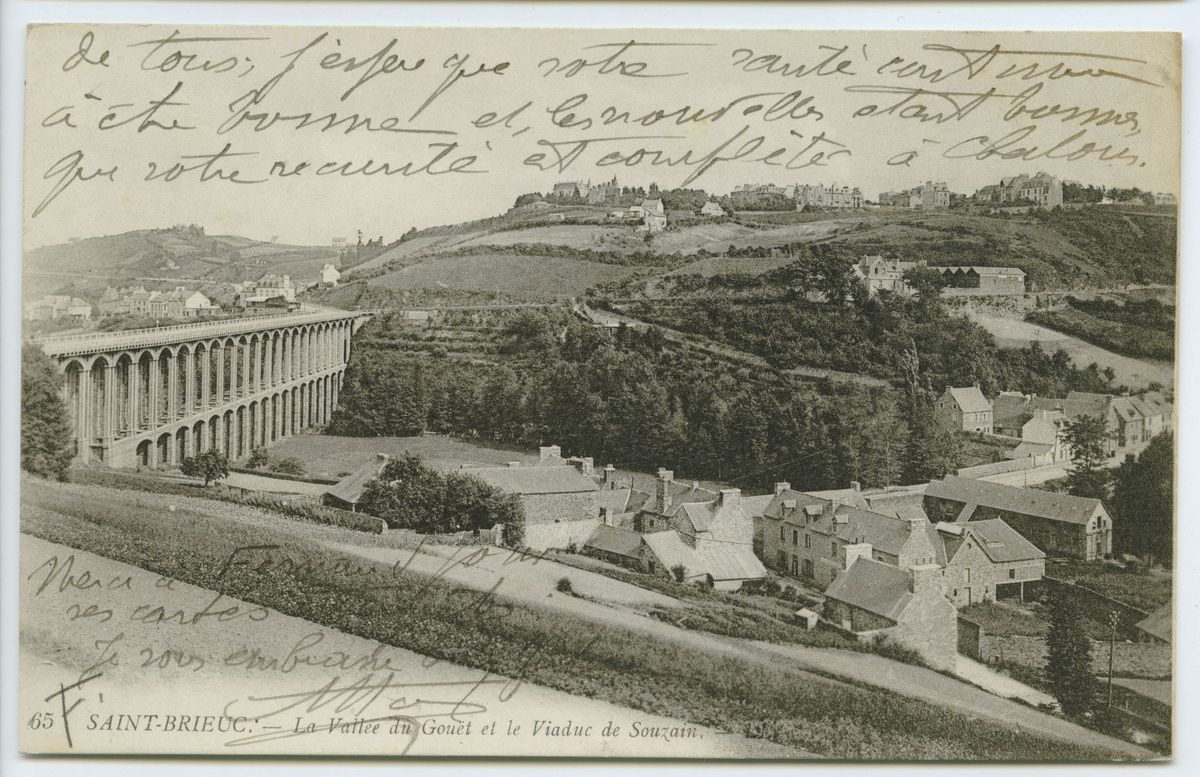 de tous, j'espère que votre santé continue
à être bonne et, les nouvelles étant bonnes,
que votre sécurité est complète à Chalons.
Merci à Fernand pour
ses cartes
Je vous embrasse
65 SAINT-BRIEUC. — La Vallée du Gouët et le Viaduc de Souzain. —